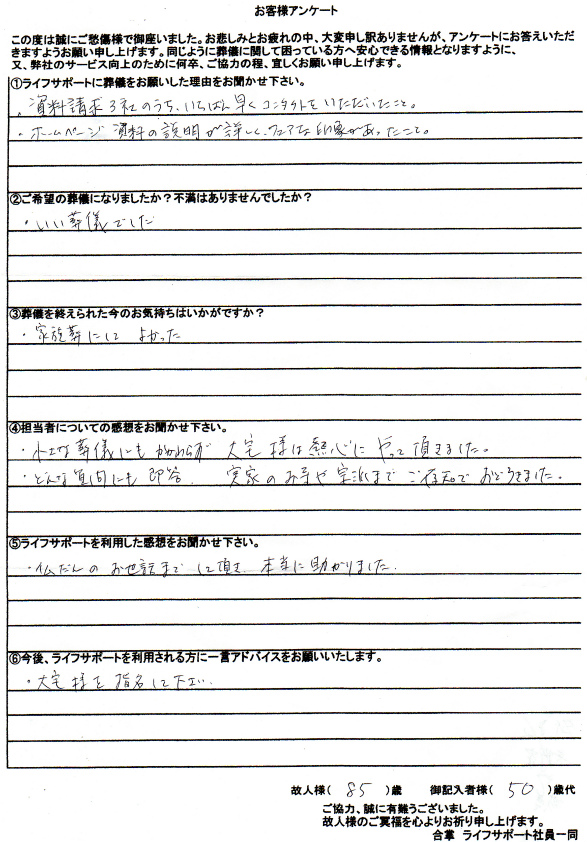 お客様アンケート
この度は誠にご愁傷様で御座いました。お悲しみとお疲れの中、大変申し訳ありませんが、アンケートにお答えいただ
きますようお願い申し上げます。同じように葬儀に関して困っている方へ安心できる情報となりますように、
又、弊社のサービス向上のために何卒、ご協力の程、宜しくお願い申し上げます。
①ライフサポートに葬儀をお願いした理由をお聞かせ下さい。
・資料請求3社のうち、いちばん早くコンタクトをいただいたこと。
・ホームページ 資料の説明が詳しく、フェアな印象があったこと。
②ご希望の葬儀になりましたか？不満はありませんでしたか？
・いい葬儀でした
③葬儀を終えられた今のお気持ちはいかがですか？
・家族葬にして よかった
④担当者についての感想をお聞かせ下さい。
・小さな葬儀にもかかわらず 大宅様は熱心にやって頂きました。
・どんな質問にも即答、 実家のお寺や宗派までご存知でおどろきました。
⑤ライフサポートを利用した感想をお聞かせ下さい。
・仏だんのお世話までして頂き、本当に助かりました。
⑥今後、ライフサポートを利用される方に一言アドバイスをお願いいたします。
・大宅様を指名して下さい。
故人様（ 85 ）歳 御記入者様（ 50 ）歳代
ご協力、誠に有難うございました。
故人様のご冥福を心よりお祈り申し上げます。
合掌 ライフサポート社員一同